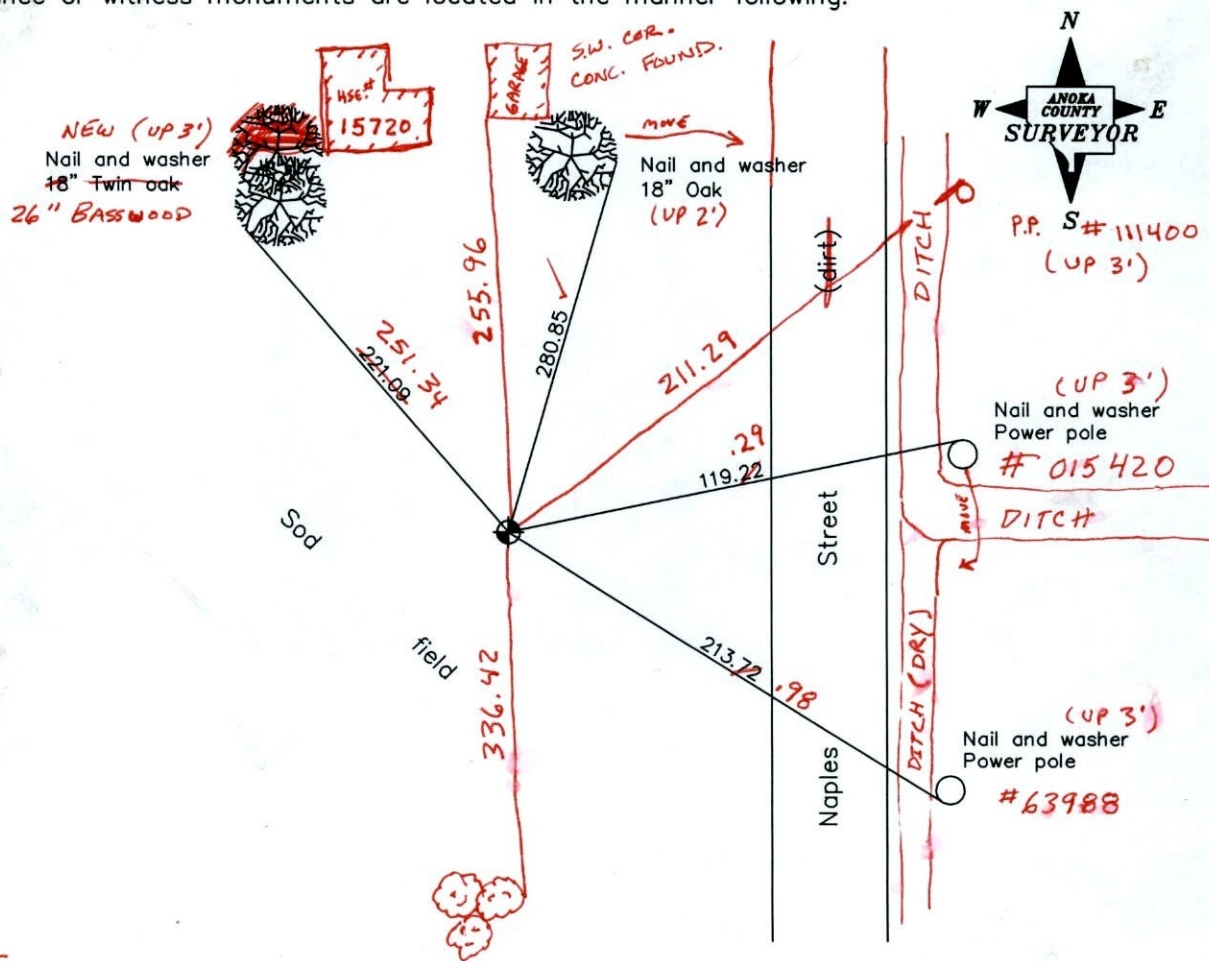 nce or witness monuments are located in the manner following:
N
W ANOKA COUNTY E
SURVEYOR
S
S.W. COR.
CONC. FOUND.
HSE.#
15720
GARAGE
NEW (UP 3')
Nail and washer
18" Twin oak
26" BASSWOOD
MOVE
Nail and washer
18" Oak
(UP 2')
P.P. # 111400
(UP 3')
DITCH
(dirt)
255.96
280.85
251.34
221.09
211.29
.29
119.22
(UP 3')
Nail and washer
Power pole
# 015420
MOVE
DITCH
Sod
field
Street
Naples
336.42
213.72 .98
DITCH (DRY)
(UP 3')
Nail and washer
Power pole
#63988